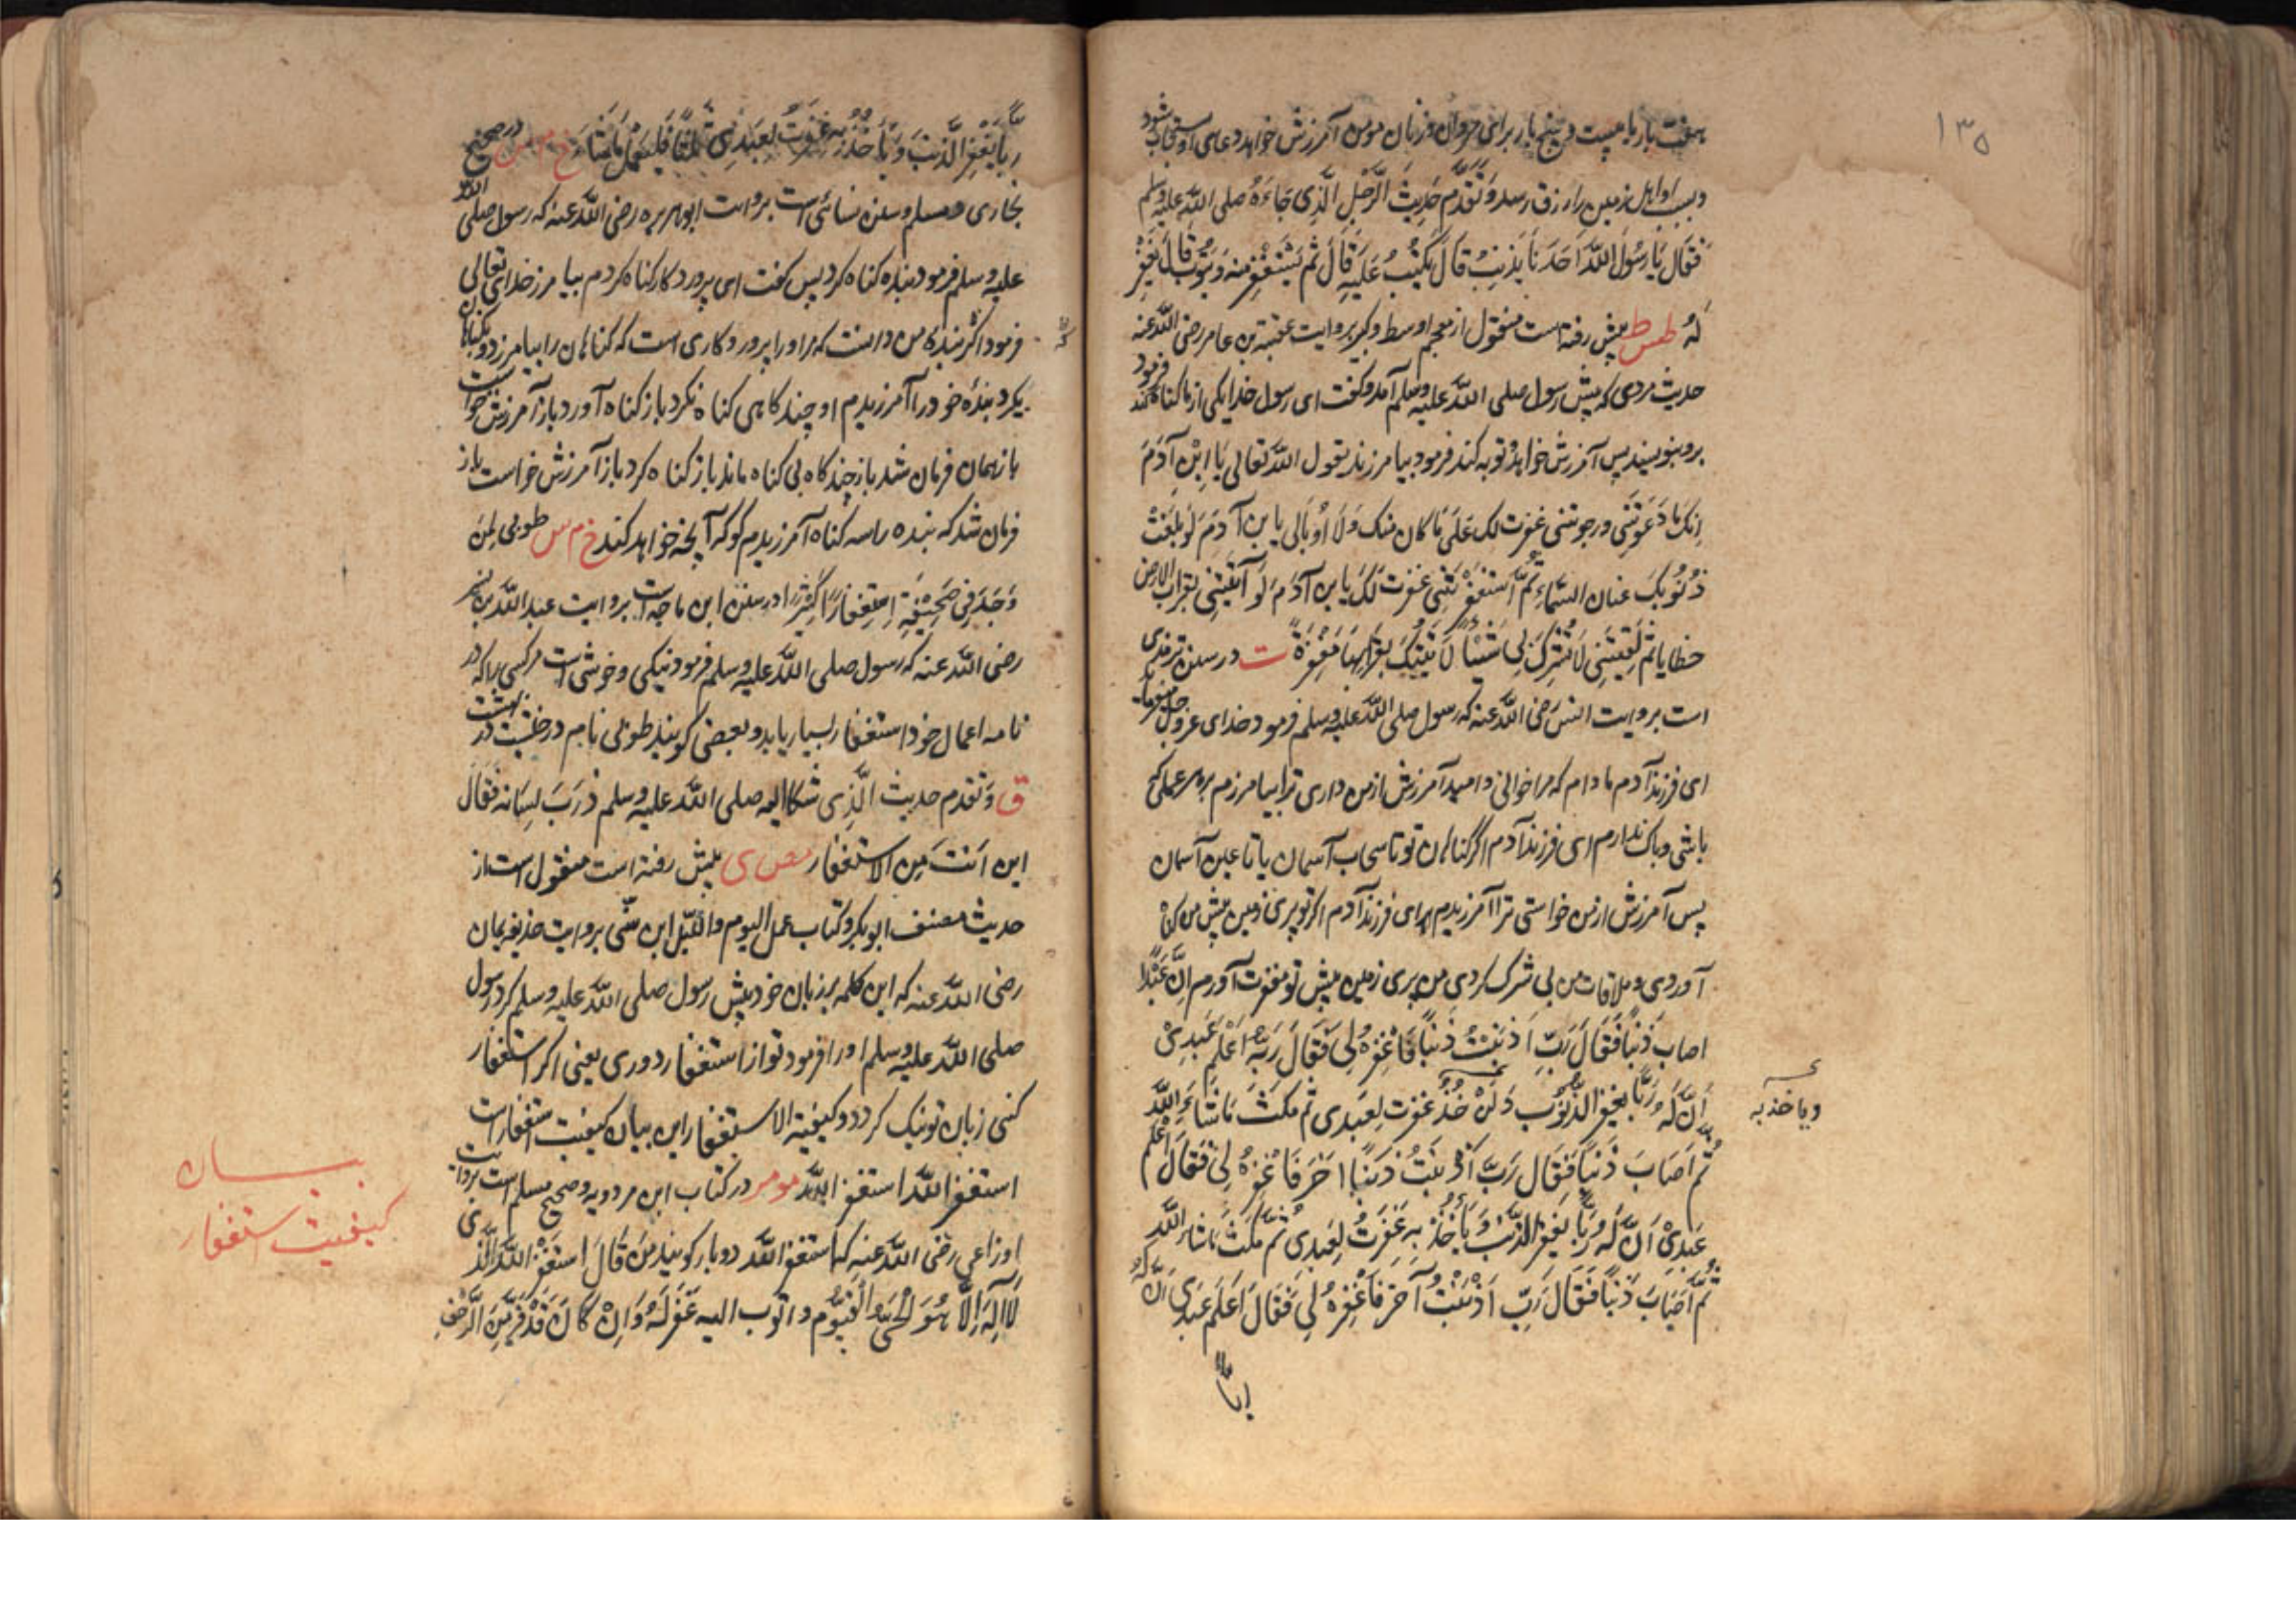 ۱۳۵
هفت بار یا بیست و پنج بار برای مردان و زنان مومن آمرزش خواهد دعای او مستجاب شود
و بسبب او اهل زمین را رزق رسد وَتَقَدَّمَ حَدِیثُ الرَّجُلِ الَّذِی جَاءَهُ صلی الله علیه وسلم
فَقَالَ یَا رَسُولَ اللّٰهِ اَحَدُنَا یُذنِبُ قَالَ یُکتَبُ عَلَیهِ قَالَ ثُمَّ یَستَغفِرُ مِنهُ وَیَتُوبُ قَالَ یُغفَرُ
لَهُ طس ط پیش رفته است منقول از معجم اوسط و کبیر بروایت عقبة بن عامر رضی الله عنه
حدیث مردی که پیش رسول صلی الله علیه وسلم آمد و گفت ای رسول خدا یکی از ما گناه کند فرمود
برو بنویسند پس آمرزش خواهد و توبه کند فرمود بیامرزند یقول الله تعالی یَا ابنَ آدَمَ
اِنَّکَ مَا دَعَوتَنِی ورجوتنی غفرت لک عَلَی مَا کان منک وَلَا اُبَالِی یا بن آدَمَ لَو بَلَغَت
ذُنُوبُکَ عنان السَّمَاءِ ثُمَّ استَغفَرتَنِی غفرت لَکَ یا بن آدَمَ لَو اَتَیتَنِی بقراب الارض
خطایا ثم لَقِیتَنِی لَا تُشرِکُ بِی شَیئًا لَاَتَیتُکَ بِقُرَابِهَا مَغفِرَةً ت در سنن ترمذی
است بروایت انس رضی الله عنه که رسول صلی الله علیه وسلم فرمود خدای عز وجل میفرماید
ای فرزند آدم مادام که مرا خوانی و امید آمرزش از من داری ترا بیامرزم بر هر عملی که
باشی و باک ندارم ای فرزند آدم اگر گناهان تو تا سحاب آسمان یا تا عین آسمان
پس آمرزش از من خواستی ترا آمرزیدم ای فرزند آدم اگر تو پری زمین پیش من گناه
آوردی و ملاقات من بی شرک کردی من پری زمین پیش تو مغفرت آورم اِنَّ عَبدًا
اصاب ذَنبًا فَقَالَ رَبِّ اَذنَبتُ ذَنبًا فَاغفِرهُ لِی فَقَالَ رَبُّهُ اَعَلِمَ عَبدِی
اَنَّ لَهُ رَبًّا یغفر الذُّنُوبَ غفرت لِعَبدِی ثم مَکَثَ مَا شَاءَ اللّٰهُ
ویاخذ به
ثُمَّ اَصَابَ ذَنبًا فَقَالَ رَبِّ اَذنَبتُ ذَنبًا آخَرَ فَاغفِرهُ لِی فَقَالَ اَعَلِمَ
عَبدِی اَنَّ لَهُ رَبًّا یَغفِرُ الذَّنبَ وَیَأخُذُ بِهِ غَفَرتُ لِعَبدِی ثُمَّ مَکَثَ مَا شاء الله
ثُمَّ اَصَابَ ذَنبًا فَقَالَ رَبِّ اَذنَبتُ آخَرَ فَاغفِرهُ لِی فَقَالَ اَعَلِمَ عَبدِی اَنَّ لَهُ
ربًّا
رَبًّا یَغفِرُ الذَّنبَ وَیَأخُذُ بِهِ غَفَرتُ لِعَبدِی ثَلٰثًا فَلیَعمَل مَا شَاءَ خ م س در صحیح
بخاری و مسلم و سنن نسائی است بروایت ابو هریره رضی الله عنه که رسول صلی الله
علیه وسلم فرمود بنده گناه کرد پس گفت ای پروردگار گناه کردم بیامرز خدای تعالی
فرمود اگر بنده من دانست که مر او را پروردگاری است که گناهان را بیامرزد و بگناهان
بگیرد بنده خود را آمرزیدم او چند گاهی گناه نکرد باز گناه آورد باز آمرزش خواست
باز همان فرمان شد باز چند گاه بی گناه ماند باز گناه کرد باز آمرزش خواست باز
فرمان شد که بنده را سه گناه آمرزیدم گو که آنچه خواهد کند خ م س طوبی لِمَن
وَجَدَ فِی صَحِیفَتِهِ اِستِغفَارًا کَثِیرًا در سنن ابن ماجه است بروایت عبد الله بن بسر
رضی الله عنه که رسول صلی الله علیه وسلم فرمود نیکی و خوشی است مر کسی را که در
نامه اعمال خود استغفار بسیار یابد و بعضی گویند طوبی نام درختیست در بهشت
ق وَتقدم حدیث الَّذِی شکا الیه صلی الله علیه وسلم ذَرَبَ لِسَانِهِ فَقَالَ
این اَنتَ مِن الاستغفار مص ی پیش رفته است منقول است از
حدیث مصنف ابوبکر و کتاب عمل الیوم واللیل ابن سنی بروایت حذیفه یمان
رضی الله عنه که این کلمه بر زبان خود پیش رسول صلی الله علیه وسلم کرد رسول
صلی الله علیه وسلم او را فرمود تو از استغفار دوری یعنی اگر استغفار
کنی زبان تو نیک گردد و کیفیة الاستغفار این بیان کیفیت استغفار است
استغفر الله استغفر الله مو مر در کتاب ابن مردویه و صحیح مسلم است بروایت
بیان
کیفیت استغفار
اوزاعی رضی الله عنه که استغفر الله دو بار گویند مَن قَالَ اَستَغفِرُ اللّٰهَ الَّذِی
لَا اِلٰهَ اِلَّا هُوَ الحَیُّ القَیُّوم و اتوب الیه غُفِرَ لَهُ وَاِن کَانَ قَد فَرَّ مِنَ الزَّحفِ